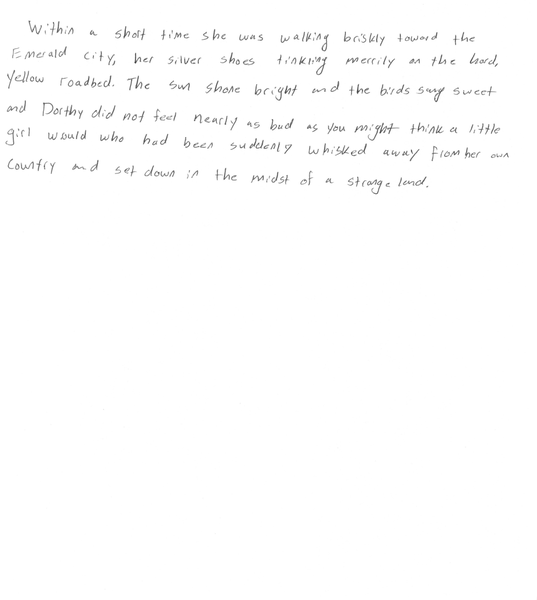 Within a short time she was walking briskly toward the
Emerald city, her silver shoes tinkling merrily on the hard,
yellow roadbed. The sun shone bright and the birds sang sweet
and Dorthy did not feel nearly as bad as you might think a little
girl would who had been suddenly whisked away from her own
country and set down in the midst of a strange land.